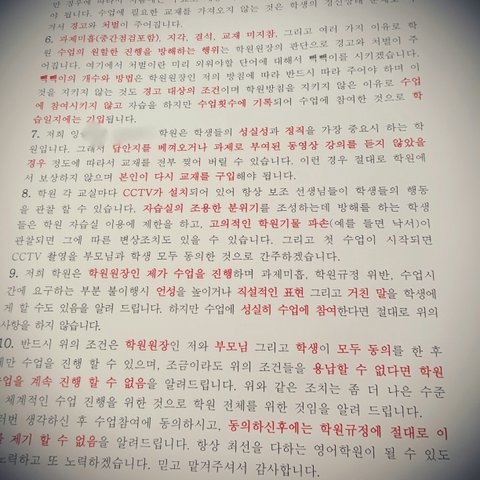 야 됩니다. 수업에 필요한 교재를 가져오지 않는 것은 학생의 정신상태
서 경고와 처벌이 주어집니다.
6. 과제미흡(중간점검포함), 지각, 결석, 교재 미지참, 그리고 여러 가지 이유로 학
원 수업의 원활한 진행을 방해하는 행위는 학원원장의 판단으로 경고와 처벌이 주
어집니다. 여기에서 처벌이란 미리 외워야할 단어에 대해서 빽빽이를 시키겠습니다.
빽빽이의 개수와 방법은 학원원장인 저의 방침에 따라 반드시 따라 주어야 하며 이
것을 지키지 않는 것도 경고 대상의 조건이며 학원방침을 지키지 않은 이유로 수업
에 참여시키지 않고 자습을 하지만 수업횟수에 기록되어 수업에 참여한 것으로 학
습일지에는 기입됩니다.
7. 저희 잉 학원은 학생들의 성실성과 정직을 가장 중요시 하는 학
원입니다. 그래서 답안지를 베껴오거나 과제로 부여된 동영상 강의를 듣지 않았을
경우 정도에 따라서 교재를 전부 찢어 버릴 수 있습니다. 이런 경우 절대로 학원에
서 보상하지 않으며 본인이 다시 교재를 구입해야 됩니다.
8. 학원 각 교실마다 CCTV가 설치되어 있어 항상 보조 선생님들이 학생들의 행동
을 관찰 할 수 있습니다. 자습실의 조용한 분위기를 조성하는데 방해를 하는 학생
들은 학원 자습실 이용에 제한을 하고, 고의적인 학원기물 파손(예를 들면 낙서)이
관찰되면 그에 따른 변상조치도 있을 수 있습니다. 그리고 첫 수업이 시작되면
CCTV 촬영을 부모님과 학생 모두 동의한 것으로 간주하겠습니다.
9. 저희 학원은 학원원장인 제가 수업을 진행하며 과제미흡, 학원규정 위반, 수업시
간에 요구하는 부분 불이행시 언성을 높이거나 직설적인 표현 그리고 거친 말을 학생에
게 할 수도 있음을 알려 드립니다. 하지만 수업에 성실히 수업에 참여한다면 절대로 위의
사항을 하지 않습니다.
10. 반드시 위의 조건은 학원원장인 저와 부모님 그리고 학생이 모두 동의를 한 후
에만 수업을 진행 할 수 있으며, 조금이라도 위의 조건들을 용납할 수 없다면 학원
수업을 계속 진행 할 수 없음을 알려드립니다. 위와 같은 조치는 좀 더 나은 수준
체계적인 수업 진행을 위한 것으로 학원 전체를 위한 것임을 알려 드립니다.
러번 생각하신 후 수업참여에 동의하시고, 동의하신후에는 학원규정에 절대로 이
를 제기 할 수 없음을 알려드립니다. 항상 최선을 다하는 영어학원이 될 수 있도
노력하고 또 노력하겠습니다. 믿고 맡겨주셔서 감사합니다.